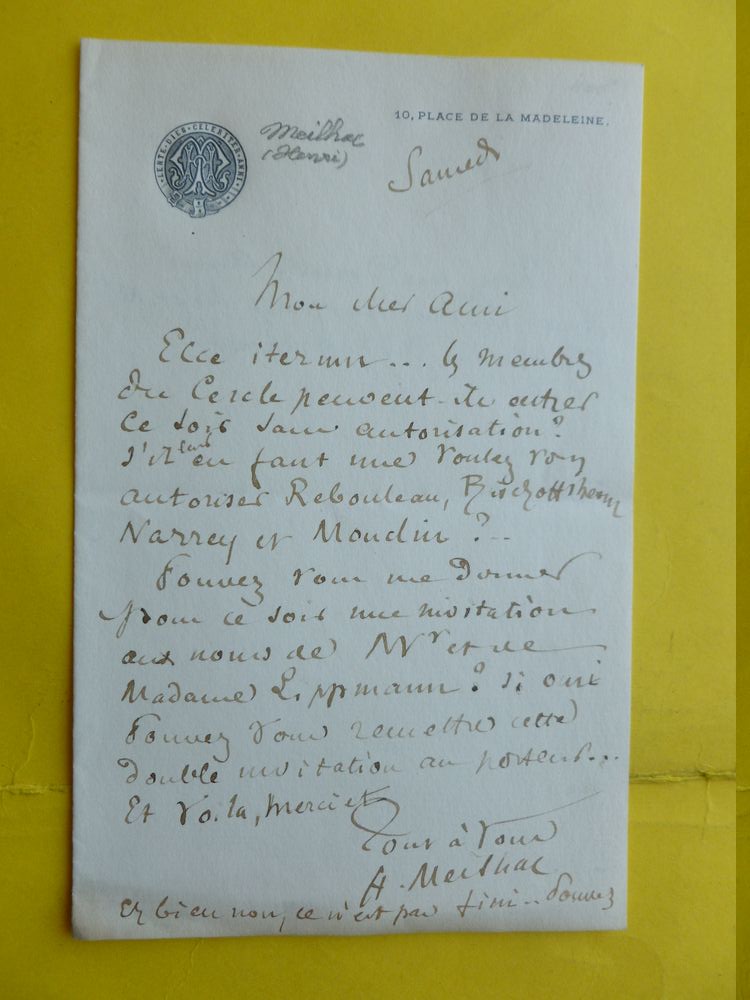 LENTE DIES CELERITER ANNI
Meilhac
(Henri)
10, PLACE DE LA MADELEINE.
Samedi
Mon cher Ami
Ecce iterum... les membres
du Cercle peuvent-ils entrer
ce soir sans autorisation?
S'il leur en faut une voulez vous
autoriser Rebouleau, Bischoffsheim
Narrey et Moudin?..
Pouvez vous me donner
pour ce soir une invitation
aux noms de Mr et de
Madame Lippmann? Si oui
Pouvez vous remettre cette
double invitation au porteur...
Et voila, merci et
Tout à Vous
H. Meilhac
Eh bien non, ce n'est pas fini.. Pouvez